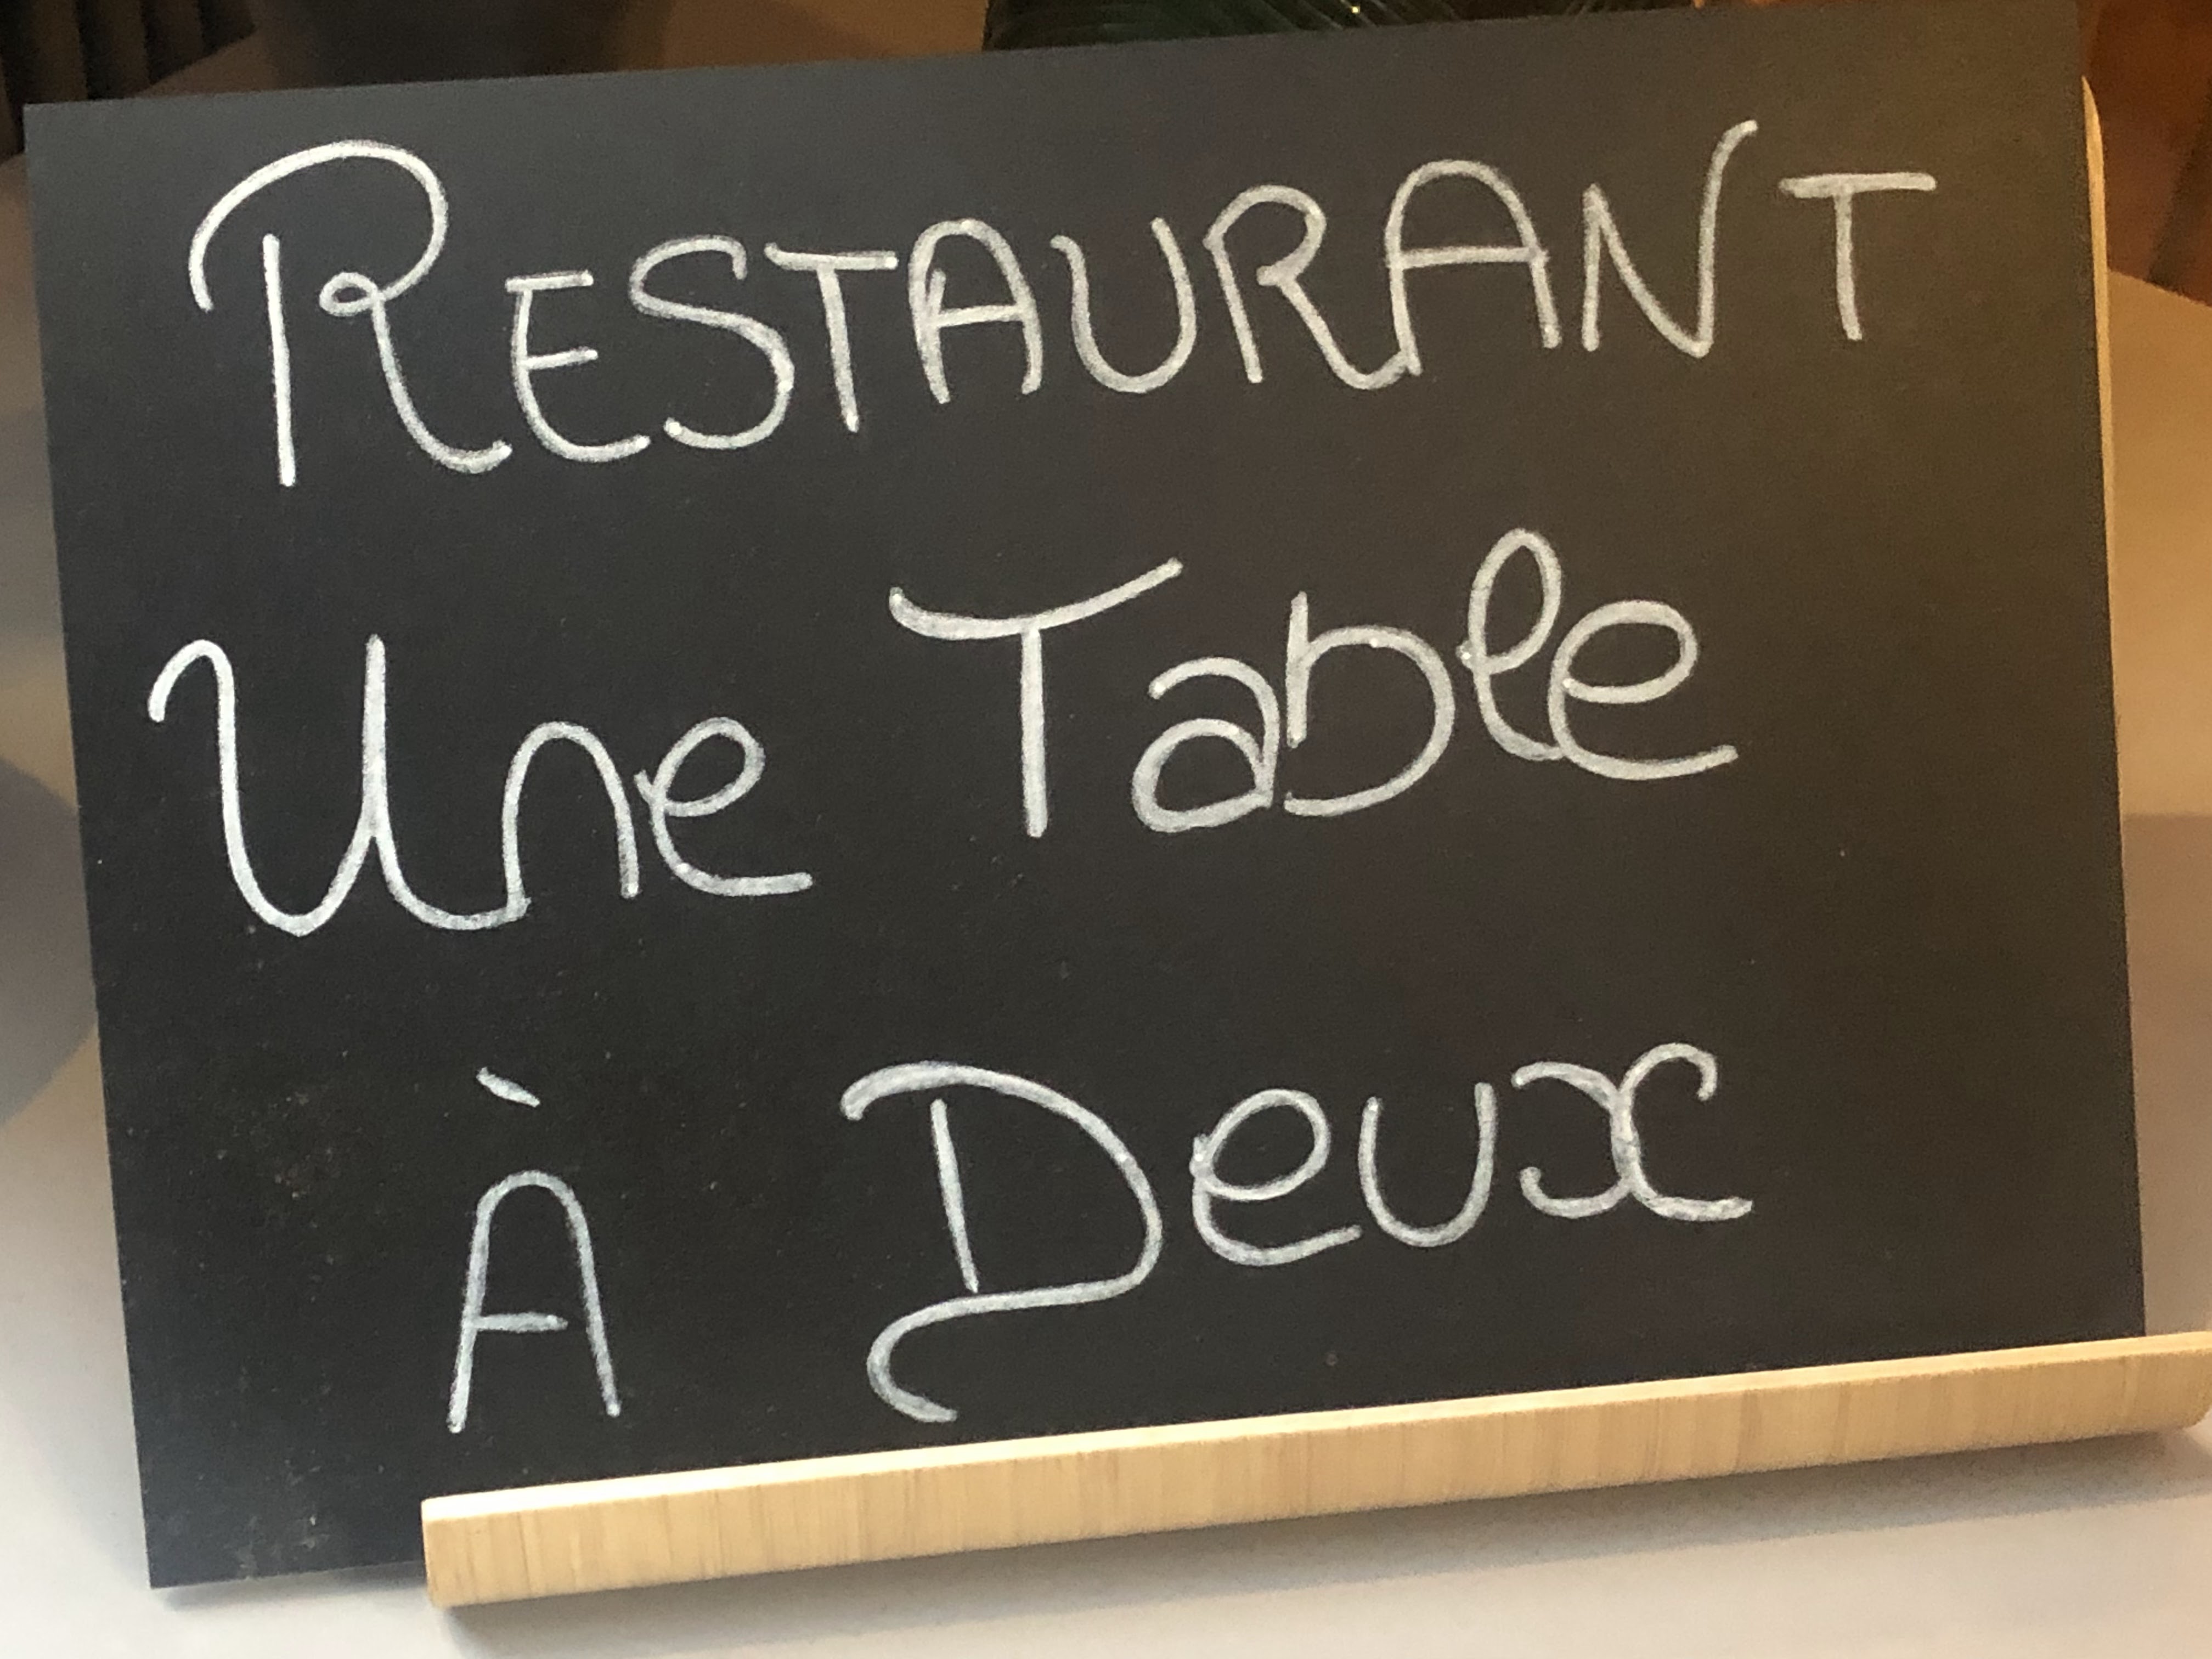 RESTAURANT
Une Table
À Deux